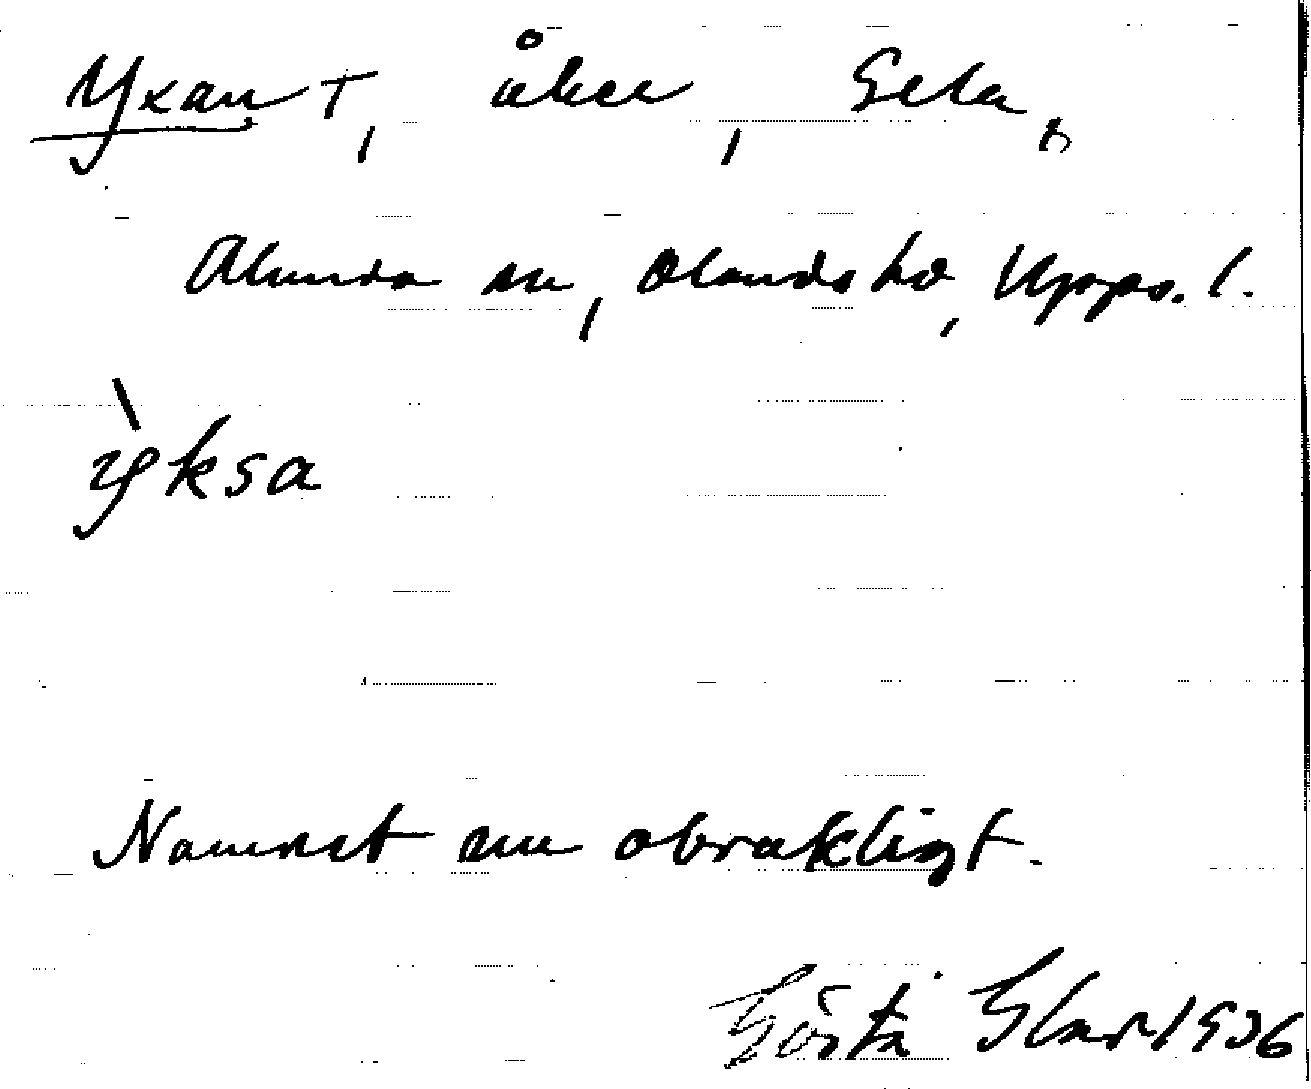 Yxan †, åker, Gela,
Alunda sn, Olands hd, Upps. l.
ỳksa
Namnet nu obrukligt.
Gösta 1936